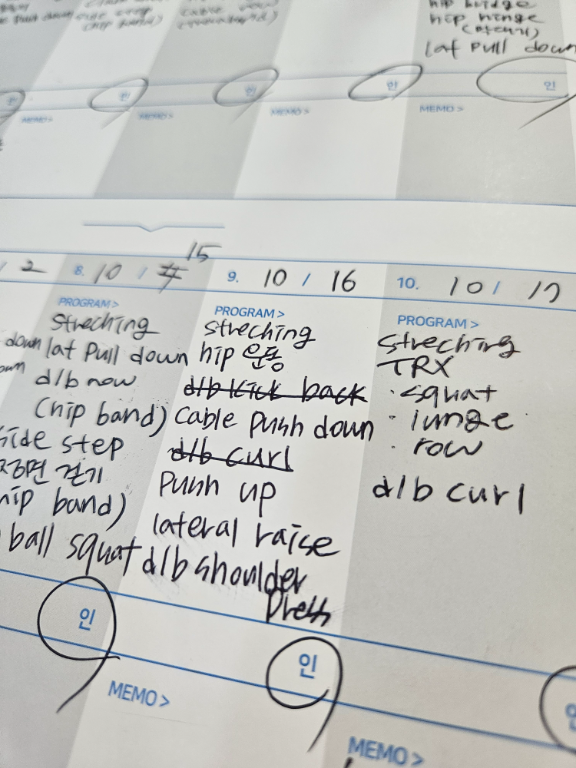 hip bridge
hip hinge
lat pull down
인
인
인
인
MEMO >
MEMO >
MEMO >
MEMO >
/ 2
8. 10 / 15
PROGRAM >
streching
lat pull down
d/b row
(hip band)
side step
정면 걷기
hip band)
ball squat
인
MEMO >
9. 10 / 16
PROGRAM >
streching
hip 운동
d/b kick back
Cable push down
d/b curl
push up
lateral raise
d/b shoulder
press
인
MEMO >
10. 10 / 17
PROGRAM >
streching
TRX
· squat
· lunge
· row
d/b curl
인